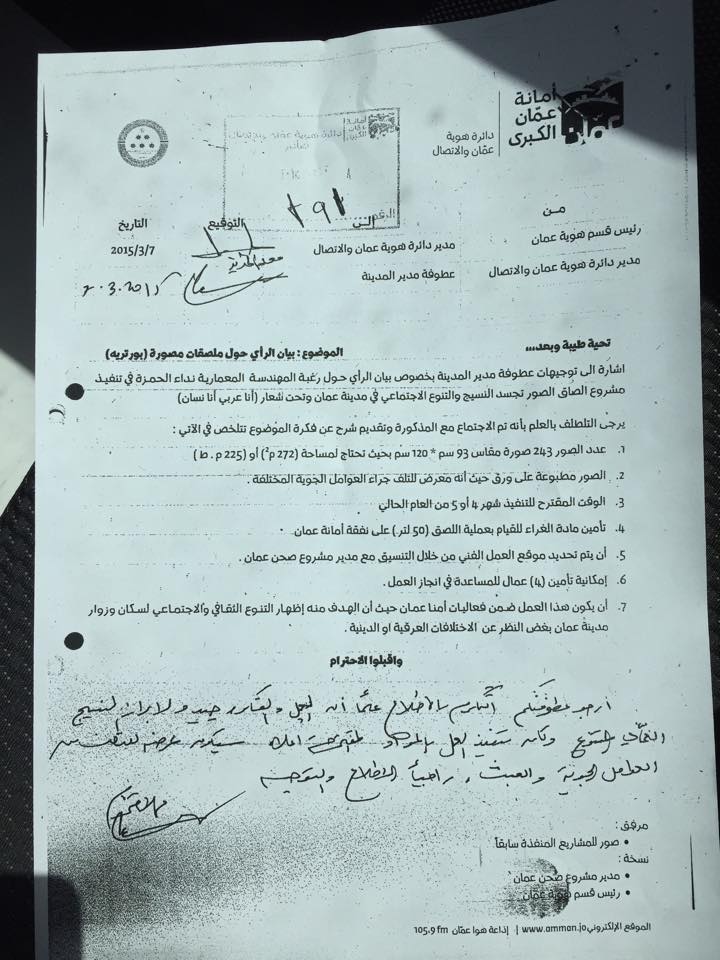 أمانة
عمّان
الكبرى
دائرة هوية
عمّان والاتصال
الرقم
١٩١
من
إلى
التوقيع
التاريخ
رئيس قسم هوية عمان
مدير دائرة هوية عمان والاتصال
2015/3/7
مدير دائرة هوية عمان والاتصال
عطوفة مدير المدينة
تحية طيبة وبعد،،،
الموضوع : بيان الرأي حول ملصقات مصورة (بورتريه)
اشارة الى توجيهات عطوفة مدير المدينة بخصوص بيان الرأي حول رغبة المهندسة المعمارية نداء الحمزة في تنفيذ
مشروع الصاق الصور تجسد النسيج والتنوع الاجتماعي في مدينة عمان وتحت شعار (أنا عربي أنا نسان)
يرجى التلطلف بالعلم بأنه تم الاجتماع مع المذكورة وتقديم شرح عن فكرة الموضوع تتلخص في الآتي :
1. عدد الصور 243 صورة مقاس 93 سم * 120 سم بحيث تحتاج لمساحة (272 م²) أو (225 م . ط )
2. الصور مطبوعة على ورق حيث أنه معرض للتلف جراء العوامل الجوية المختلفة .
3. الوقت المقترح للتنفيذ شهر 4 أو 5 من العام الحالي
4. تأمين مادة الغراء للقيام بعملية اللصق (50 لتر) على نفقة أمانة عمان
5. أن يتم تحديد موقع العمل الفني من خلال التنسيق مع مدير مشروع صحن عمان .
6. إمكانية تأمين (4) عمال للمساعدة في انجاز العمل .
7. أن يكون هذا العمل ضمن فعاليات أمنا عمان حيث أن الهدف منه إظهار التنوع الثقافي والاجتماعي لسكان وزوار
مدينة عمان بغض النظر عن الاختلافات العرقية او الدينية .
واقبلوا الاحترام
ارجو عطوفتكم التكرم بالاطلاع علماً أن العمل جيد ولابراز النسيج
المتنوع تنفيذ العمل بالمواد اعلاه سيكون عرضه
العوامل الجوية والعبث ، راجياً الاطلاع والتوجيه
مرفق :
• صور للمشاريع المنفذة سابقاً.
نسخة :
• مدير مشروع صحن عمان
• رئيس قسم هوية عمّان
الموقع الإلكتروني www.amman.jo | إذاعة هوا عمّان 105.9 fm